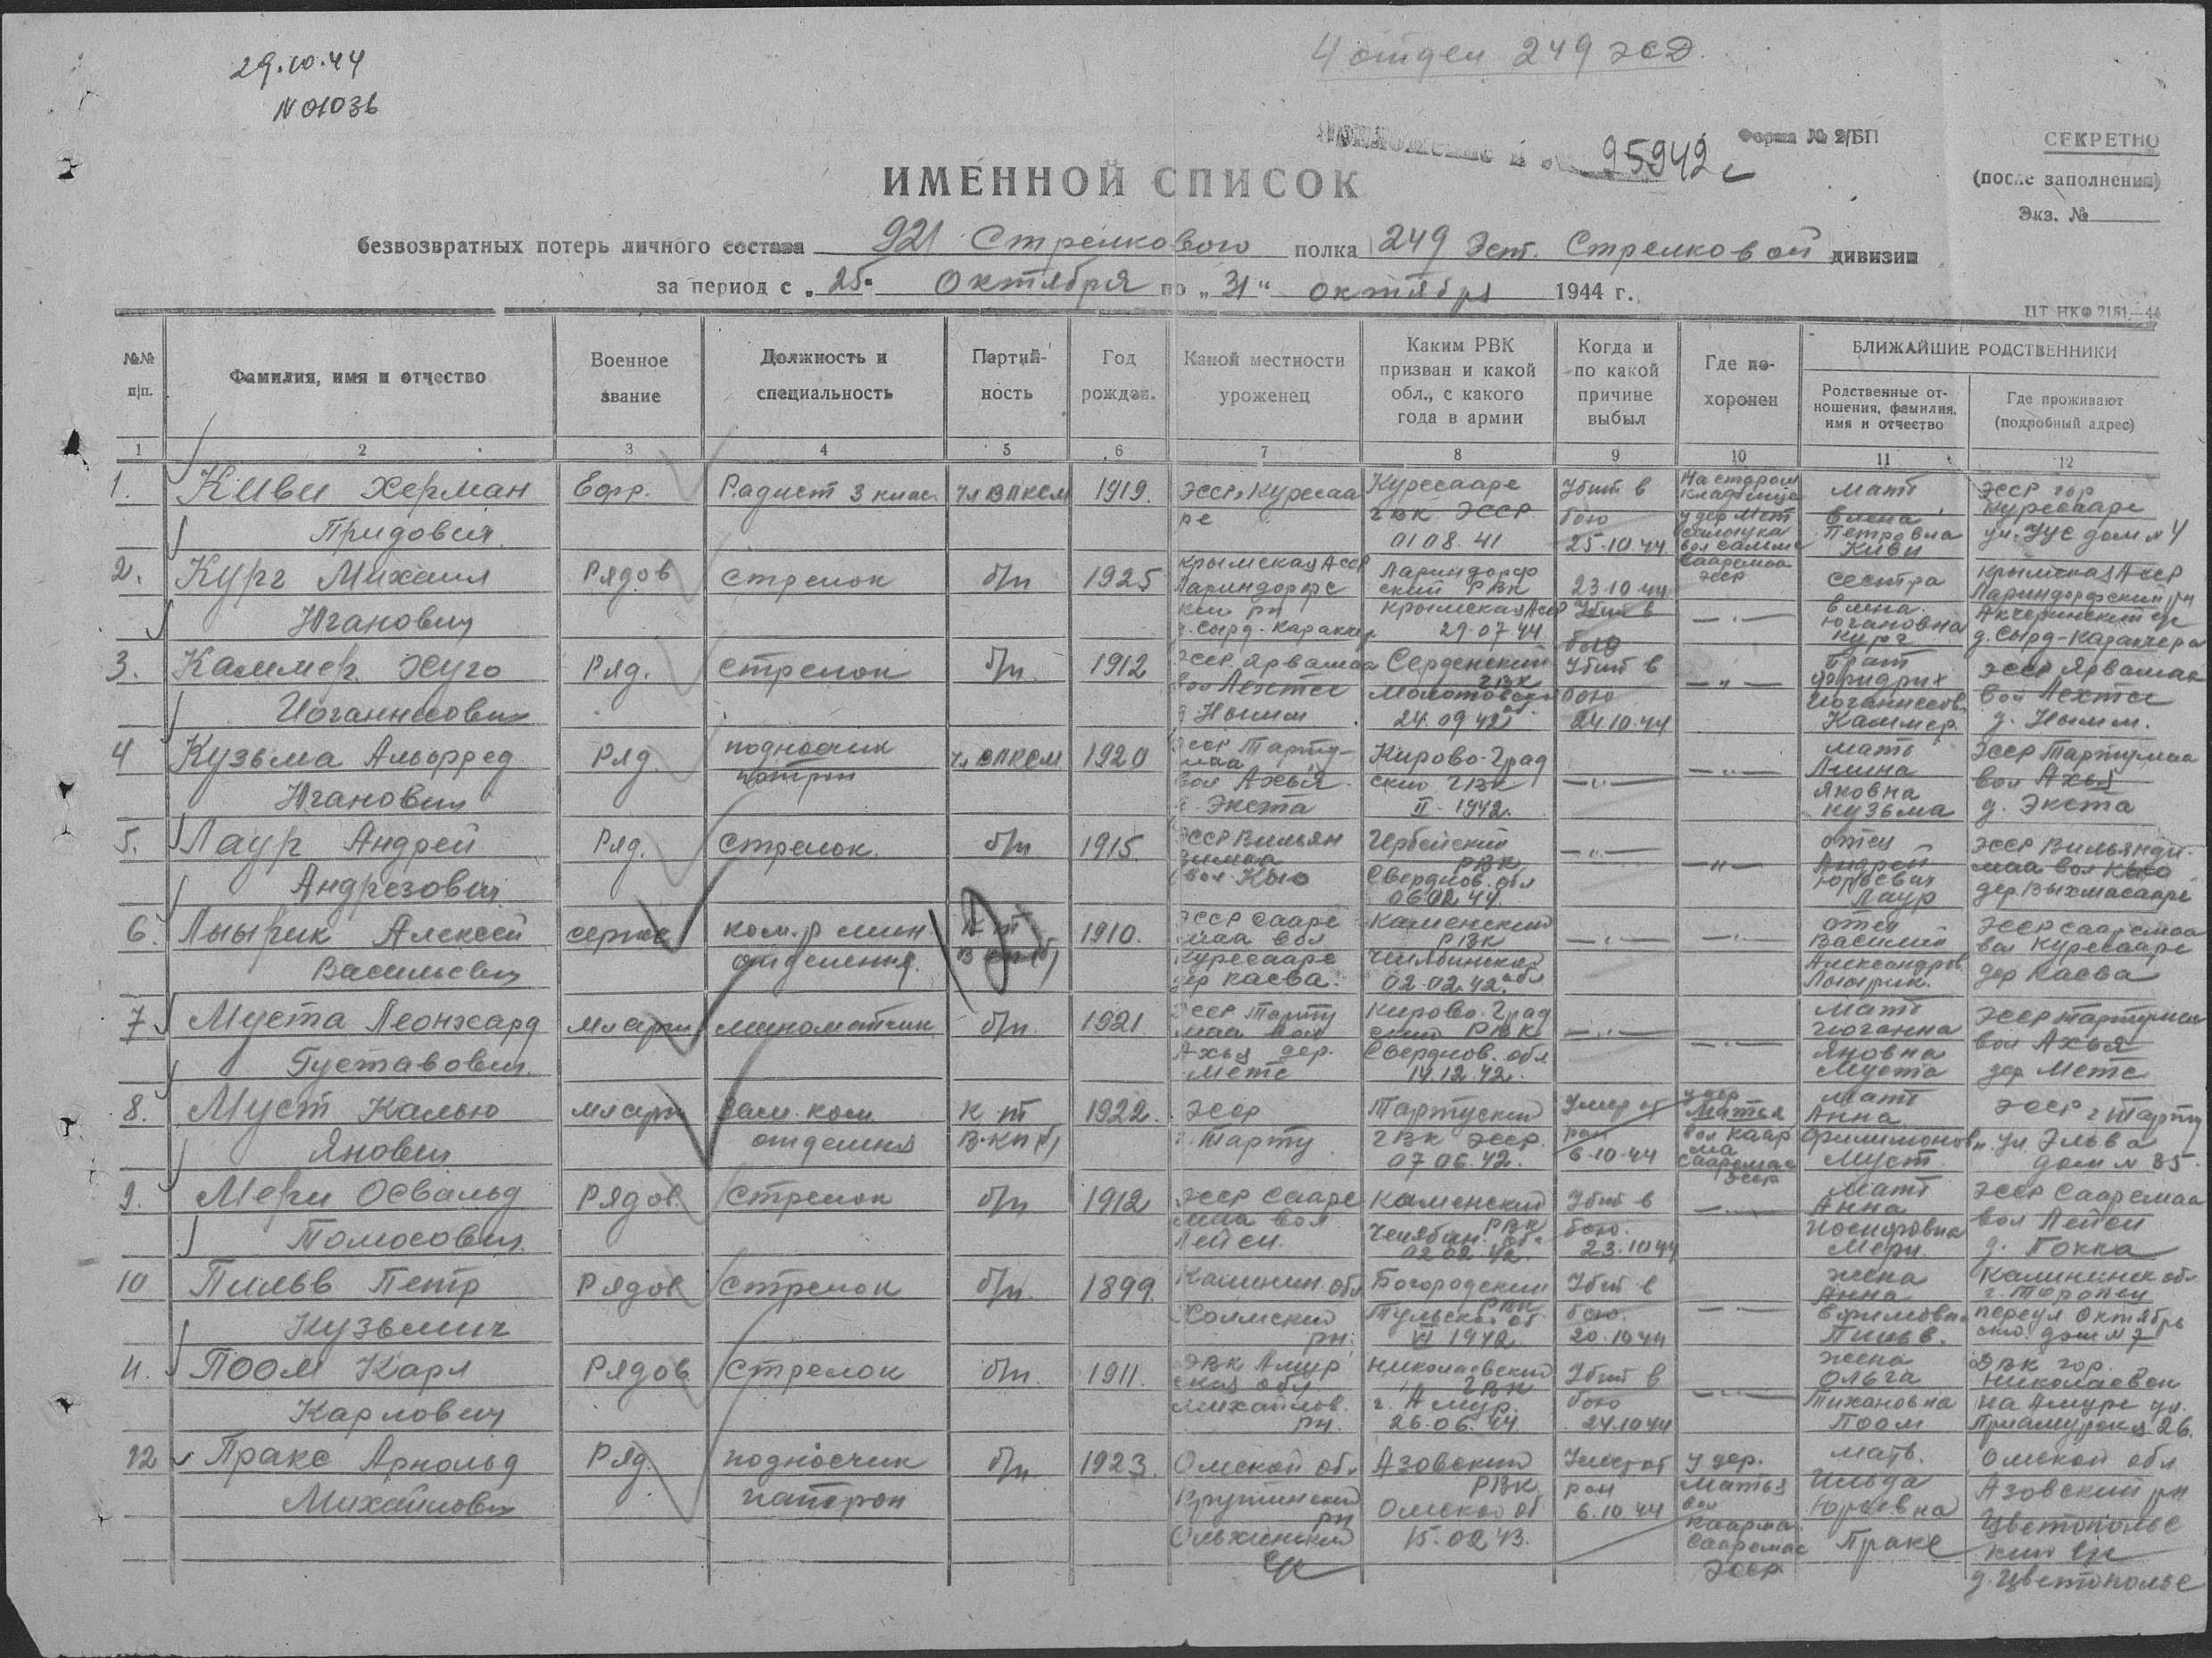 29.10.44
N 01036
4 отдел 249 ЭСД.
95942 с
Форма № 2/БП
СЕКРЕТНО
(после заполнения)
Экз. №
ИМЕННОЙ СПИСОК
безвозвратных потерь личного состава 921 Стрелкового полка 249 Эст. Стрелковой дивизии
за период с „25" Октября по „31" октября 1944 г.
ЦТ НКО 2161—44
№№ п/п.
Фамилия, имя и отчество
Военное звание
Должность и специальность
Партийность
Год рожден.
Какой местности уроженец
Каким РВК призван и какой обл., с какого года в армии
Когда и по какой причине выбыл
Где похоронен
БЛИЖАЙШИЕ РОДСТВЕННИКИ
Родственные отношения, фамилия, имя и отчество
Где проживают (подробный адрес)
1 2 3 4 5 6 7 8 9 10 11 12
1. Киви Херман Ефр. Радист 3 клас. чл ВЛКСМ 1919. ЭССР, Курессаа Курессааре Убит в На старом мать ЭССР гор
Придович ре ГВК ЭССР бою кладбище Елена Курессааре
01 08. 41 25.10.44 у дер Петровна ул. Уус дом № 4
вол Сальме Киви
Сааремаа
ЭССР
2. Кург Михаил Рядов стрелок б/п 1925 Крымская АССР Лариндорф 23.10.44 сестра Крымская АССР
Юганович Лариндорфс ский РВК Убит в —"— Елена Лариндорфский рн
кий рн Крымская АССР бою Югановна
д. Сырд-Каракчер 29.07.44 Кург д. Сырд-Каракчера
3. Каммер Хуго Ряд. стрелок б/п. 1912 ЭССР, Ярвамаа ГВК Убит в —"— брат ЭССР Ярвамаа
Иоганнесович вол Лехтсе Молотовской бою Фридрих вол Лехтсе
24.09.42 обл 24.10.44 Иоганнесов.
Каммер.
4 Кузьма Альфред Ряд. подносчик чл ВЛКСМ 1920 ЭССР Тарту- Кирово-Град —"— —"— мать ЭССР Тартумаа
Юганович патрон маа ский ГВК Лиина вол Ахья
вол Ахья II-1942. Яновна д. Экста
д. Экста Кузьма
5. Лаур Андрей Ряд. стрелок. б/п 1915. ЭССР Вильян РВК —"— —"— отец ЭССР Вильянди-
Андрезович димаа Свердлов. обл Андрей маа вол Кыо
вол. Кыо Юрьевич
Лаур
6. Лыырик Алексей серж ком. р мин. 1910. ЭССР Сааре Каменский —"— —"— отец ЭССР Сааремаа
Васильевич отделения. маа вол РВК Василий вол Курессааре
Курессааре Челябинской Александров. дер Каева
дер Каева. 02.02.42. обл Лыырик.
7. Муста Леонхард мл серж минометчик б/п. 1921. ЭССР Тарту Кирово-Град —"— —"— мать ЭССР Тартумаа
Густавович. маа вол ский РВК Юганна вол Ахья
Ахья дер. Свердлов. обл Яновна дер Метс
Метс 14.12.42. Муста
8. Муст Калью мл серж Зам. ком К-т 1922. ЭССР Тартуский Умер от у дер мать ЭССР г Тарту
Янович отделения ВКП(б) г. Тарту ГВК ЭССР. ран Матья Анна ул Эльва
07.06.42. 6.10.44 вол Каарма Филимонов. дом № 85
Сааремаа Муст
ЭССР
9. Мери Освальд Рядов. стрелок б/п 1912 ЭССР Сааре Каменский Убит в —"— мать ЭССР Сааремаа
Томосович. маа вол РВК бою. Анна вол Лейси
Лейси. Челябин. обл 23.10.44 Иосифовна
02 02.42. Мери
10 Пильв Петр Рядов стрелок б/п. 1899. Калинин. обл Богородский Убит в —"— жена Калининск обл
Кузьмич Холмский РВК бою. Анна г. Торопец
рн. Тульской об 20.10.44 Ефимовна переул Октябрь
VI 1942 Пильв. ский дом № 7
11. Поом Карл Рядов. стрелок б/п. 1911. ДВК Амур Николаевский Убит в —"— жена ДВК гор.
Карлович ская обл ГВК бою Ольга Николаевск
Михайлов. г. Амур. 24.10.44 Тихановна на Амуре ул.
рн. 26.06.44. Поом Приамурская 26.
12 Пракс Арнольд Ряд. подносчик б/п. 1923. Омской об. Азовский Умер от у дер. мать. Омской обл
Михайлович патрон Крутинский РВК ран Матья Ильда Азовский рн
рн Омской об 6.10.44 вол Юрьевна Цветополье
15.02.43. Каарма. Пракс кий с/с
с/с Сааремаа д. Цветополье
ЭССР